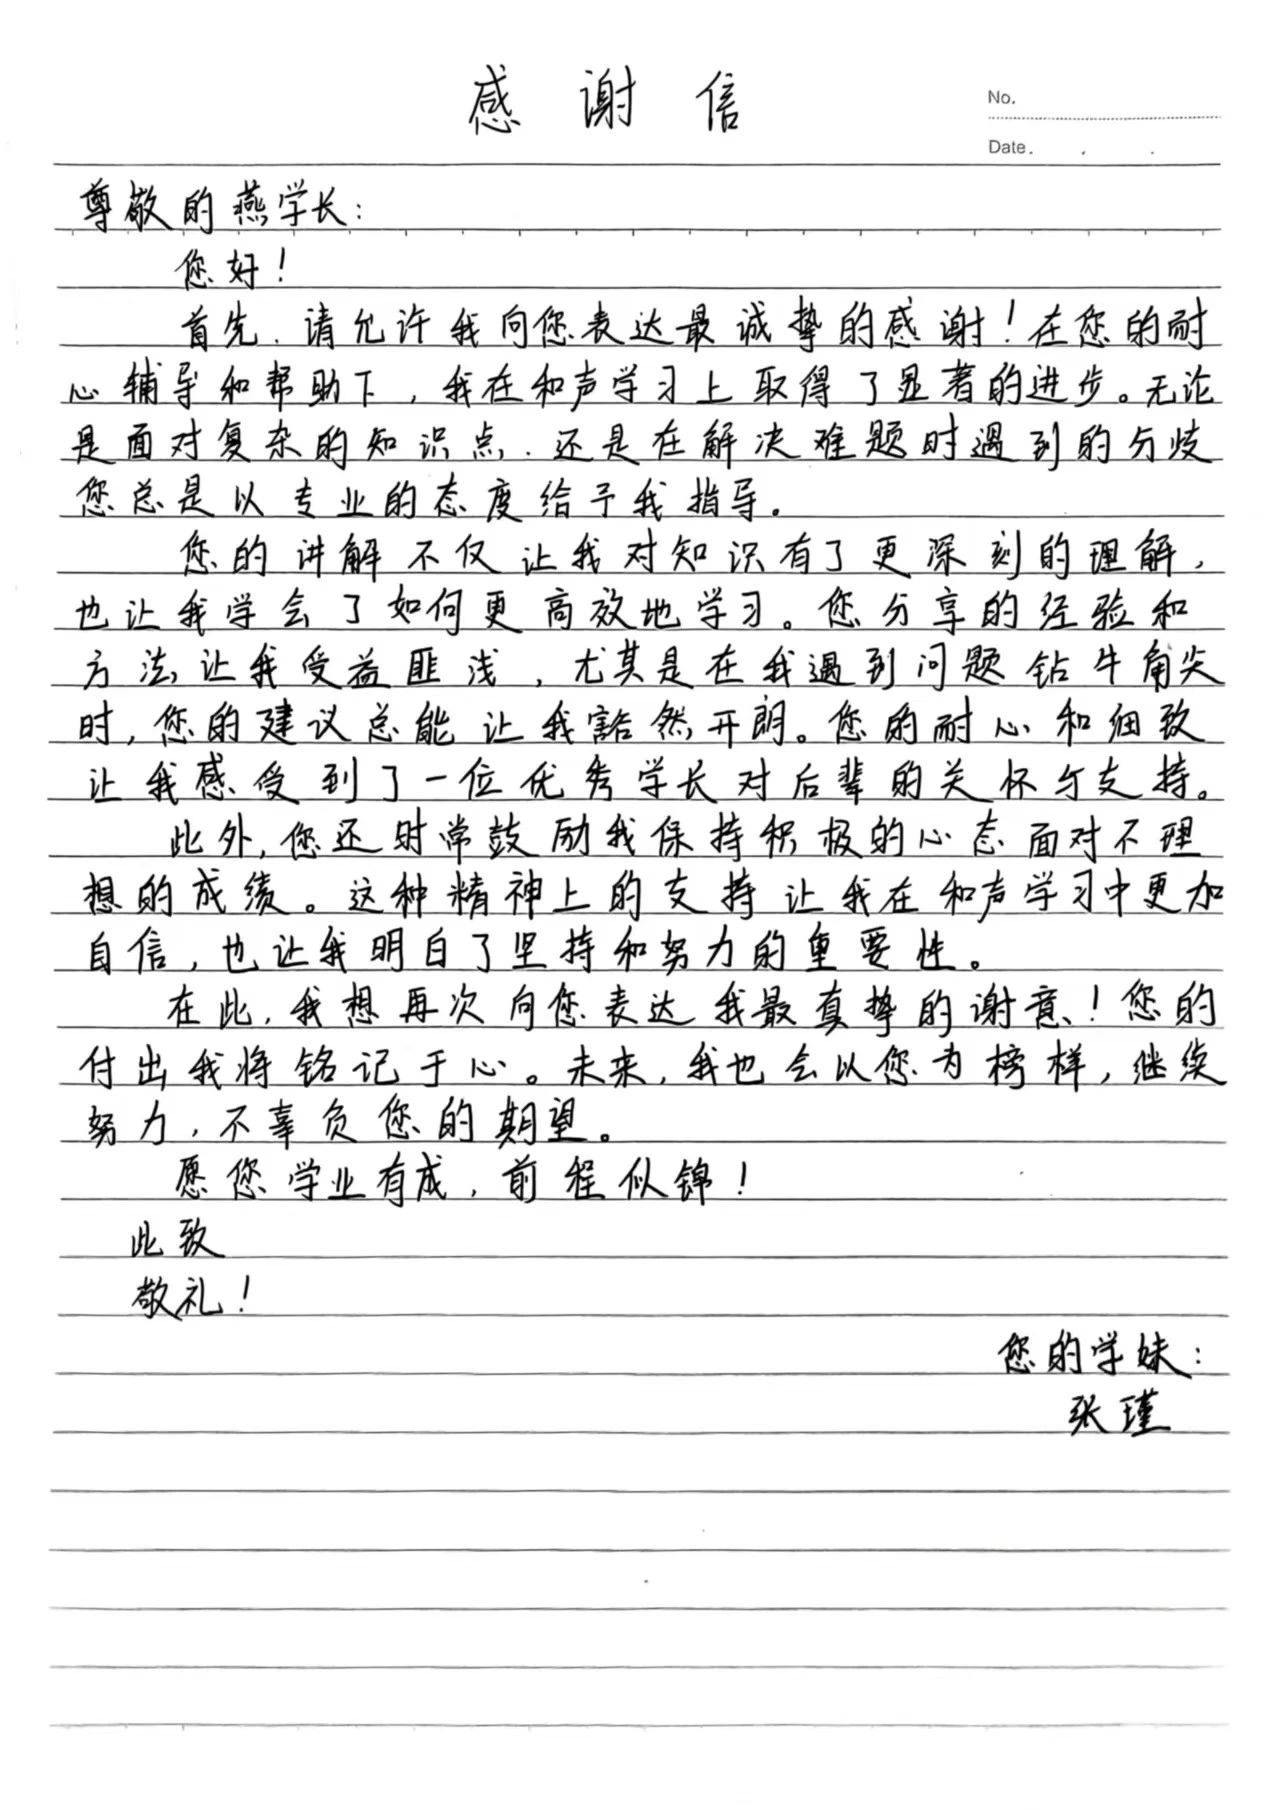 感谢信
No.
Date. . .
尊敬的燕学长:
您好!
首先,请允许我向您表达最诚挚的感谢!在您的耐
心辅导和帮助下,我在和声学习上取得了显著的进步。无论
是面对复杂的知识点,还是在解决难题时遇到的分歧
您总是以专业的态度给予我指导。
您的讲解不仅让我对知识有了更深刻的理解,
也让我学会了如何更高效地学习。您分享的经验和
方法让我受益匪浅,尤其是在我遇到问题钻牛角尖
时,您的建议总能让我豁然开朗。您的耐心和细致
让我感受到了一位优秀学长对后辈的关怀与支持。
此外,您还时常鼓励我保持积极的心态面对不理
想的成绩。这种精神上的支持让我在和声学习中更加
自信,也让我明白了坚持和努力的重要性。
在此,我想再次向您表达我最真挚的谢意!您的
付出我将铭记于心。未来,我也会以您为榜样,继续
努力,不辜负您的期望。
愿您学业有成,前程似锦!
此致
敬礼!
您的学妹:
张瑾